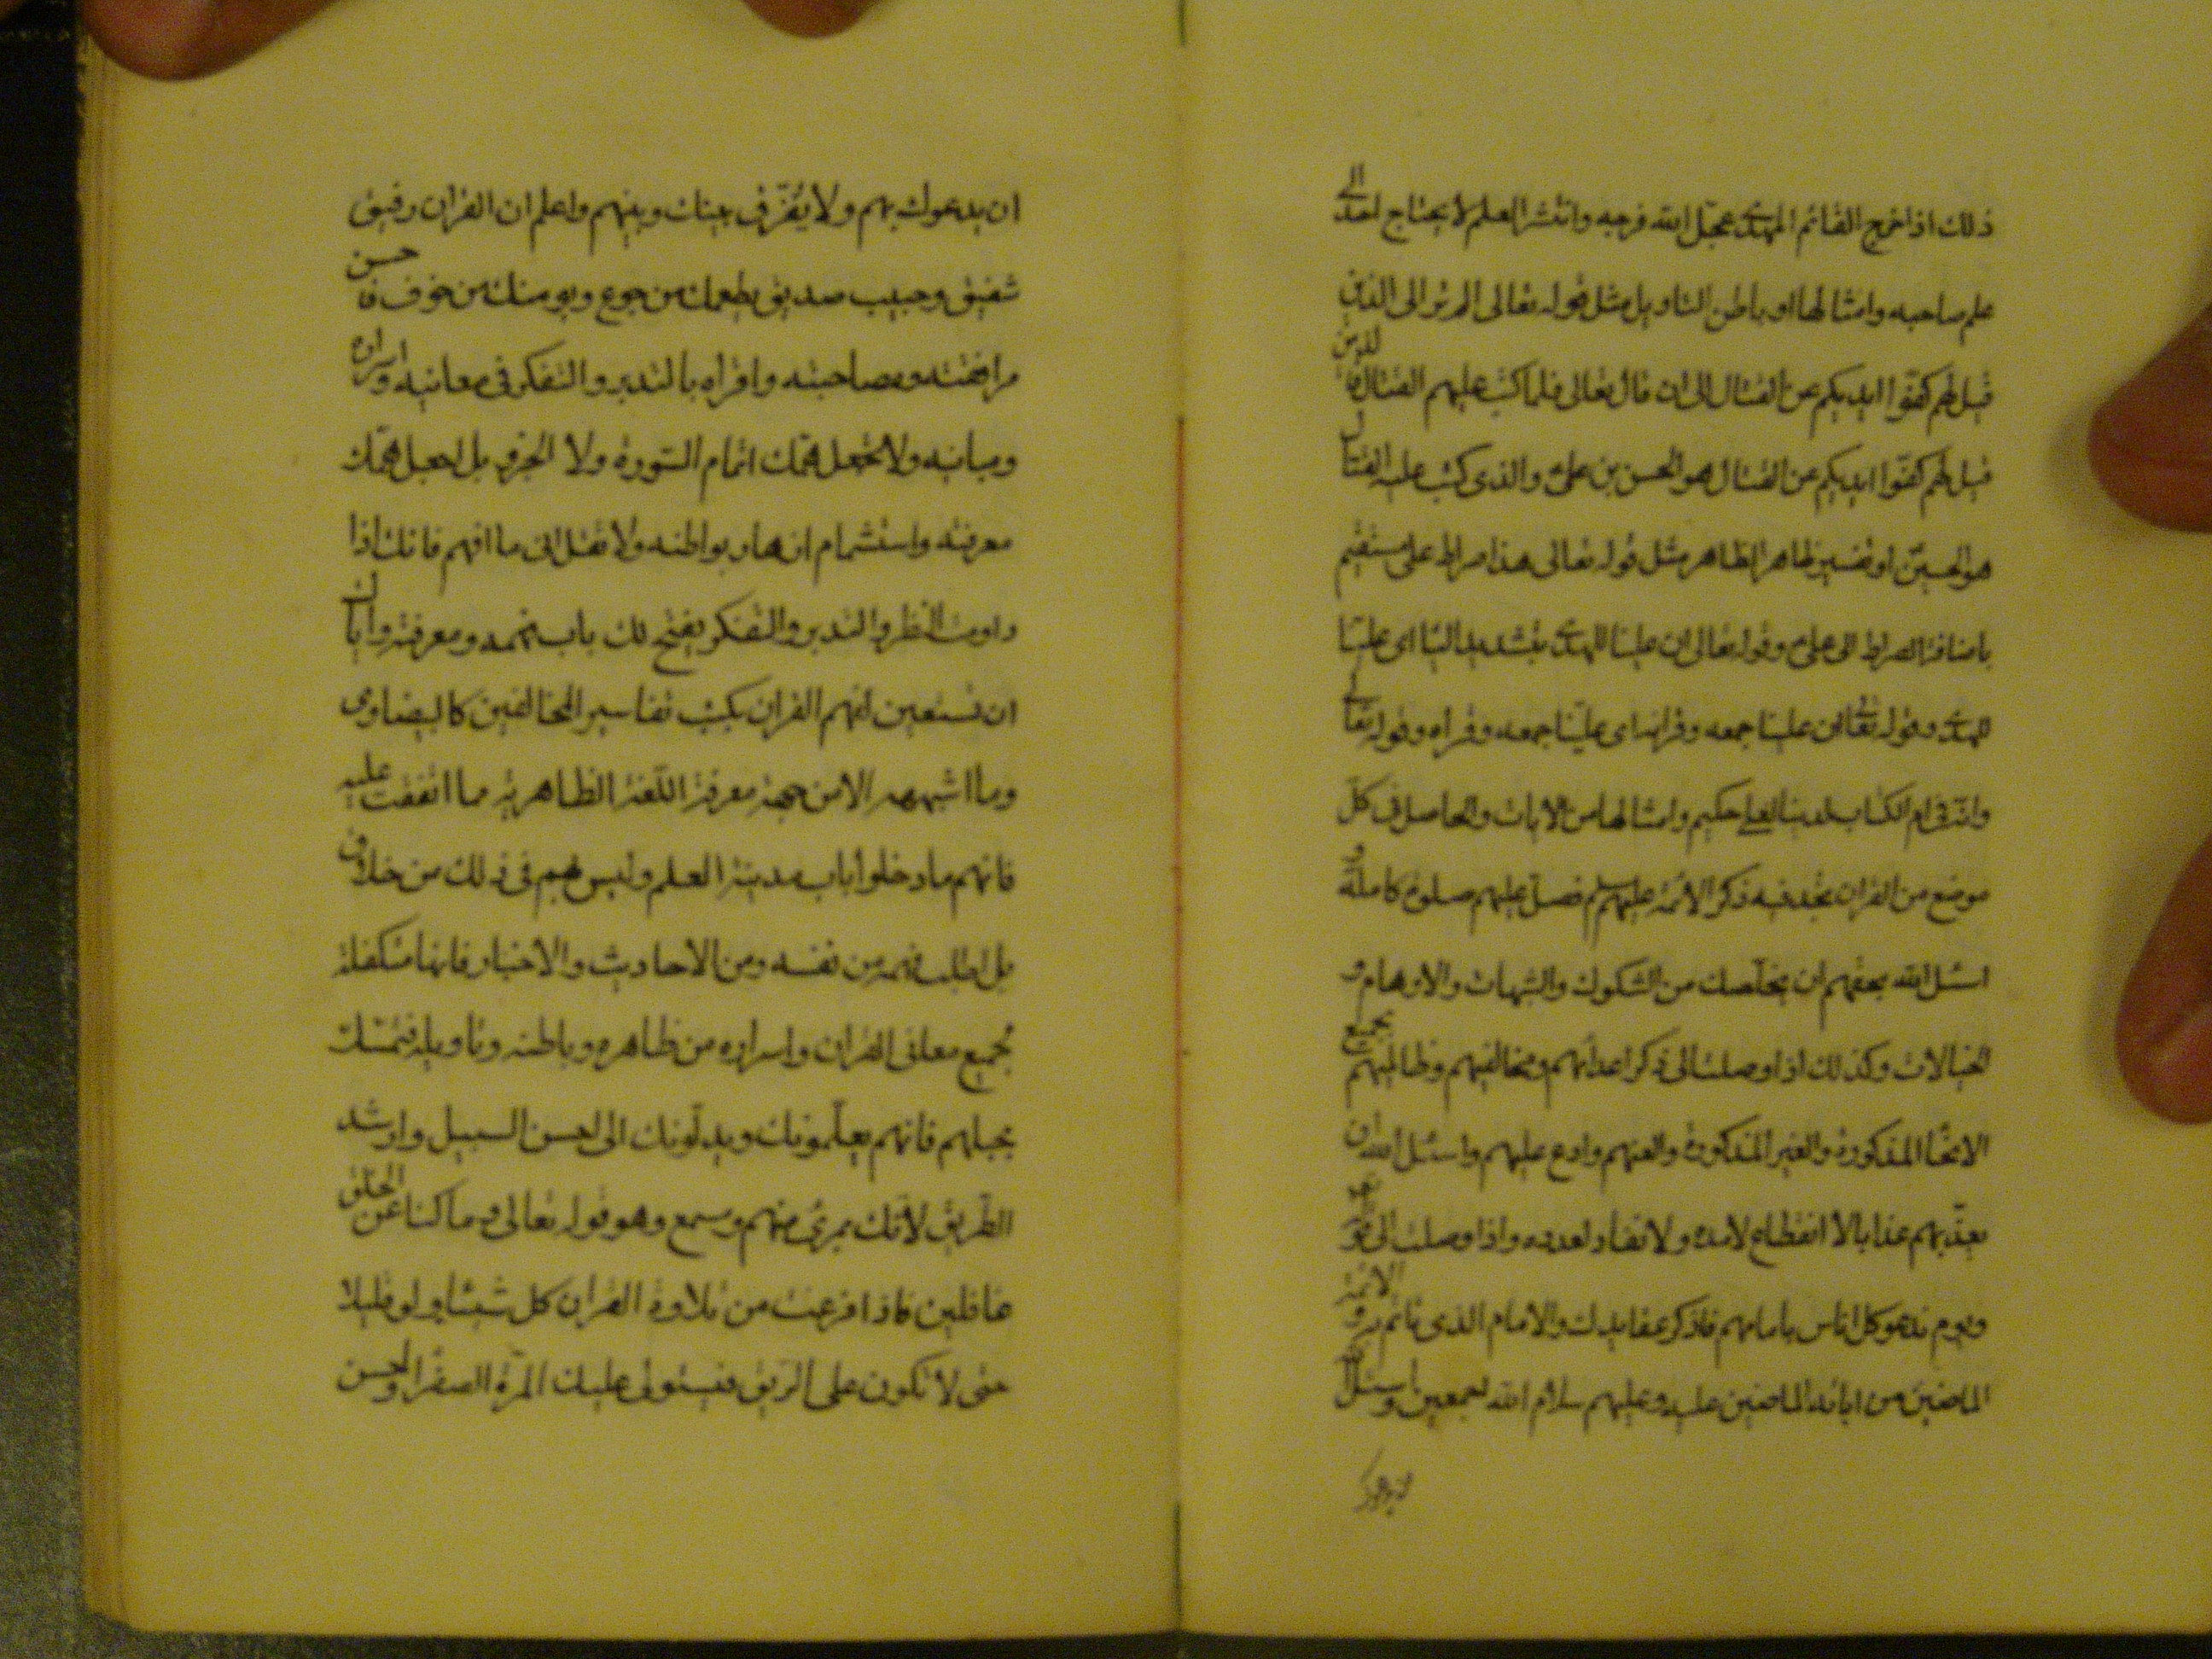 ذلك اذا خرج القائم المهدى عجل الله فرجه وانتشر العلم لا يحتاج احد الى
علم صاحبه وامثالها او باطن التاويل مثل قوله تعالى الم تر الى الذين
قيل لهم كفوا ايديكم عن القتال الى ان قال تعالى فلما كتب عليهم القتال فالذين
قيل لهم كفوا ايديكم عن القتال هو الحسن بن على والذى كتب عليه القتال
هو الحسين او تفسير ظاهر الظاهر مثل قوله تعالى هذا صراط على مستقيم
باضافة الصراط الى على وقوله تعالى ان علينا للهدى بتشديد اليا اى عليّا
للهدى وقوله تعالى ان علينا جمعه وقرانه اى عليّنا جمعه وقراه وقوله تعالى
وانه فى ام الكتاب لدينا لعلى حكيم وامثالها من الايات والحاصل فى كل
موضع من القران تجد فيه ذكر الائمة عليهم سلم فصل عليهم صلوة كاملة و
اسئل الله بحقهم ان يخلصك من الشكوك والشبهات والاوهام و
الخيالات وكذلك اذا وصلت الى ذكر اعدائهم ومخالفيهم وظالميهم بجميع
الانحا المذكورة والغير المذكورة والعنهم وادع عليهم واسئل الله ان
يعذبهم عذابا لا انقطاع لامده ولا نفاد لعدده واذا وصلت الى
ويوم ندعو كل اناس بامامهم فاذكر عقايدك والامام الذى تاتم به و الائمة
الماضين من ابائه الماضين عليه وعليهم سلام الله اجمعين واسئل
ان يدعوك بهم ولا يفرق بينك وبينهم واعلم ان القران رفيق
شفيق وحبيب صديق يطعمك من جوع ويومنك من خوف فاحسن
مرافقته ومصاحبته واقراه بالتدبر والتفكر فى معانيه واسراره
ومبانيه ولا تجعل همك اتمام السورة ولا الجزو بل اجعل همك
معرفته واستشمام ازهار بواطنه ولا تقل انى ما افهم فانك اذا
داومت النظر والتدبر والتفكر يفتح لك باب فهمه ومعرفته واياك
ان تستعين لفهم القران بكتب تفاسير المخالفين كالبيضاوى
وما اشبهه الا من جهة معرفة اللغة الظاهرية مما اتفقت عليه
فانهم ما دخلوا باب مدينة العلم وليس لهم فى ذلك من خلاق
بل اطلب فهمه من نفسه ومن الاحاديث والاخبار فانها متكفلة
بجميع معانى القران واسراره من ظاهره وباطنه وتاويله فتمسك
بحبلهم فانهم يعلمونك ويدلونك الى احسن السبيل وارشد
الطريق لانك بمرئ منهم ومسمع وهو قوله تعالى وما كنا عن الخلق
غافلين فاذا فرغت من تلاوة القران كل شيئا ولو قليلا
حتى لا تكون على الريق فيستولى عليك المرة الصفرا واحسن